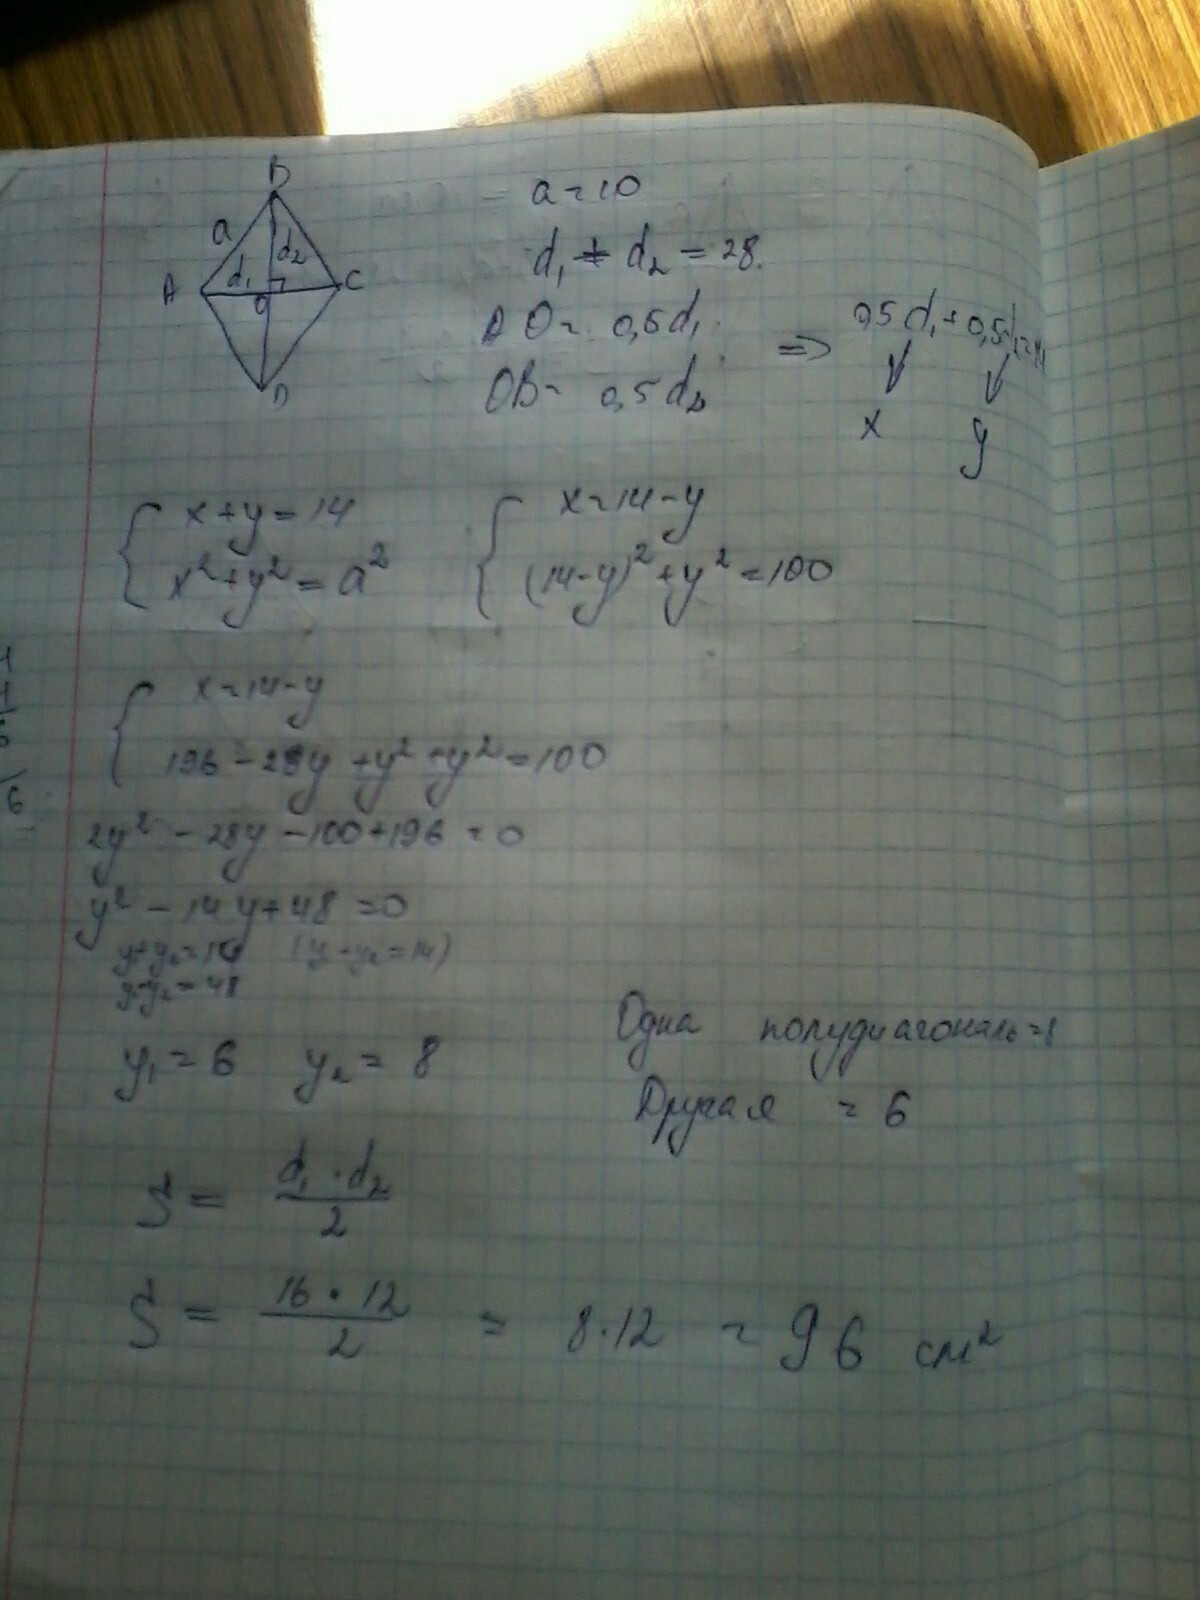 B
a
d₂
d₁
A
C
O
D
a = 10
d₁ + d₂ = 28.
AO = 0,5d₁
OB = 0,5d₂
=> 0,5d₁ + 0,5d₂=14
x y
{ x+y = 14
x² + y² = a²
{ x = 14 - y
(14-y)² + y² = 100
{ x = 14 - y
196 - 28y + y² + y² = 100
2y² - 28y - 100 + 196 = 0
y² - 14y + 48 = 0
y₁+y₂=14 (y₁+y₂=14)
y₁·y₂=48
y₁ = 6 y₂ = 8
Одна полудиагональ = 8
Другая = 6
S = d₁ · d₂ / 2
S = 16 · 12 / 2 = 8 · 12 = 96 см²